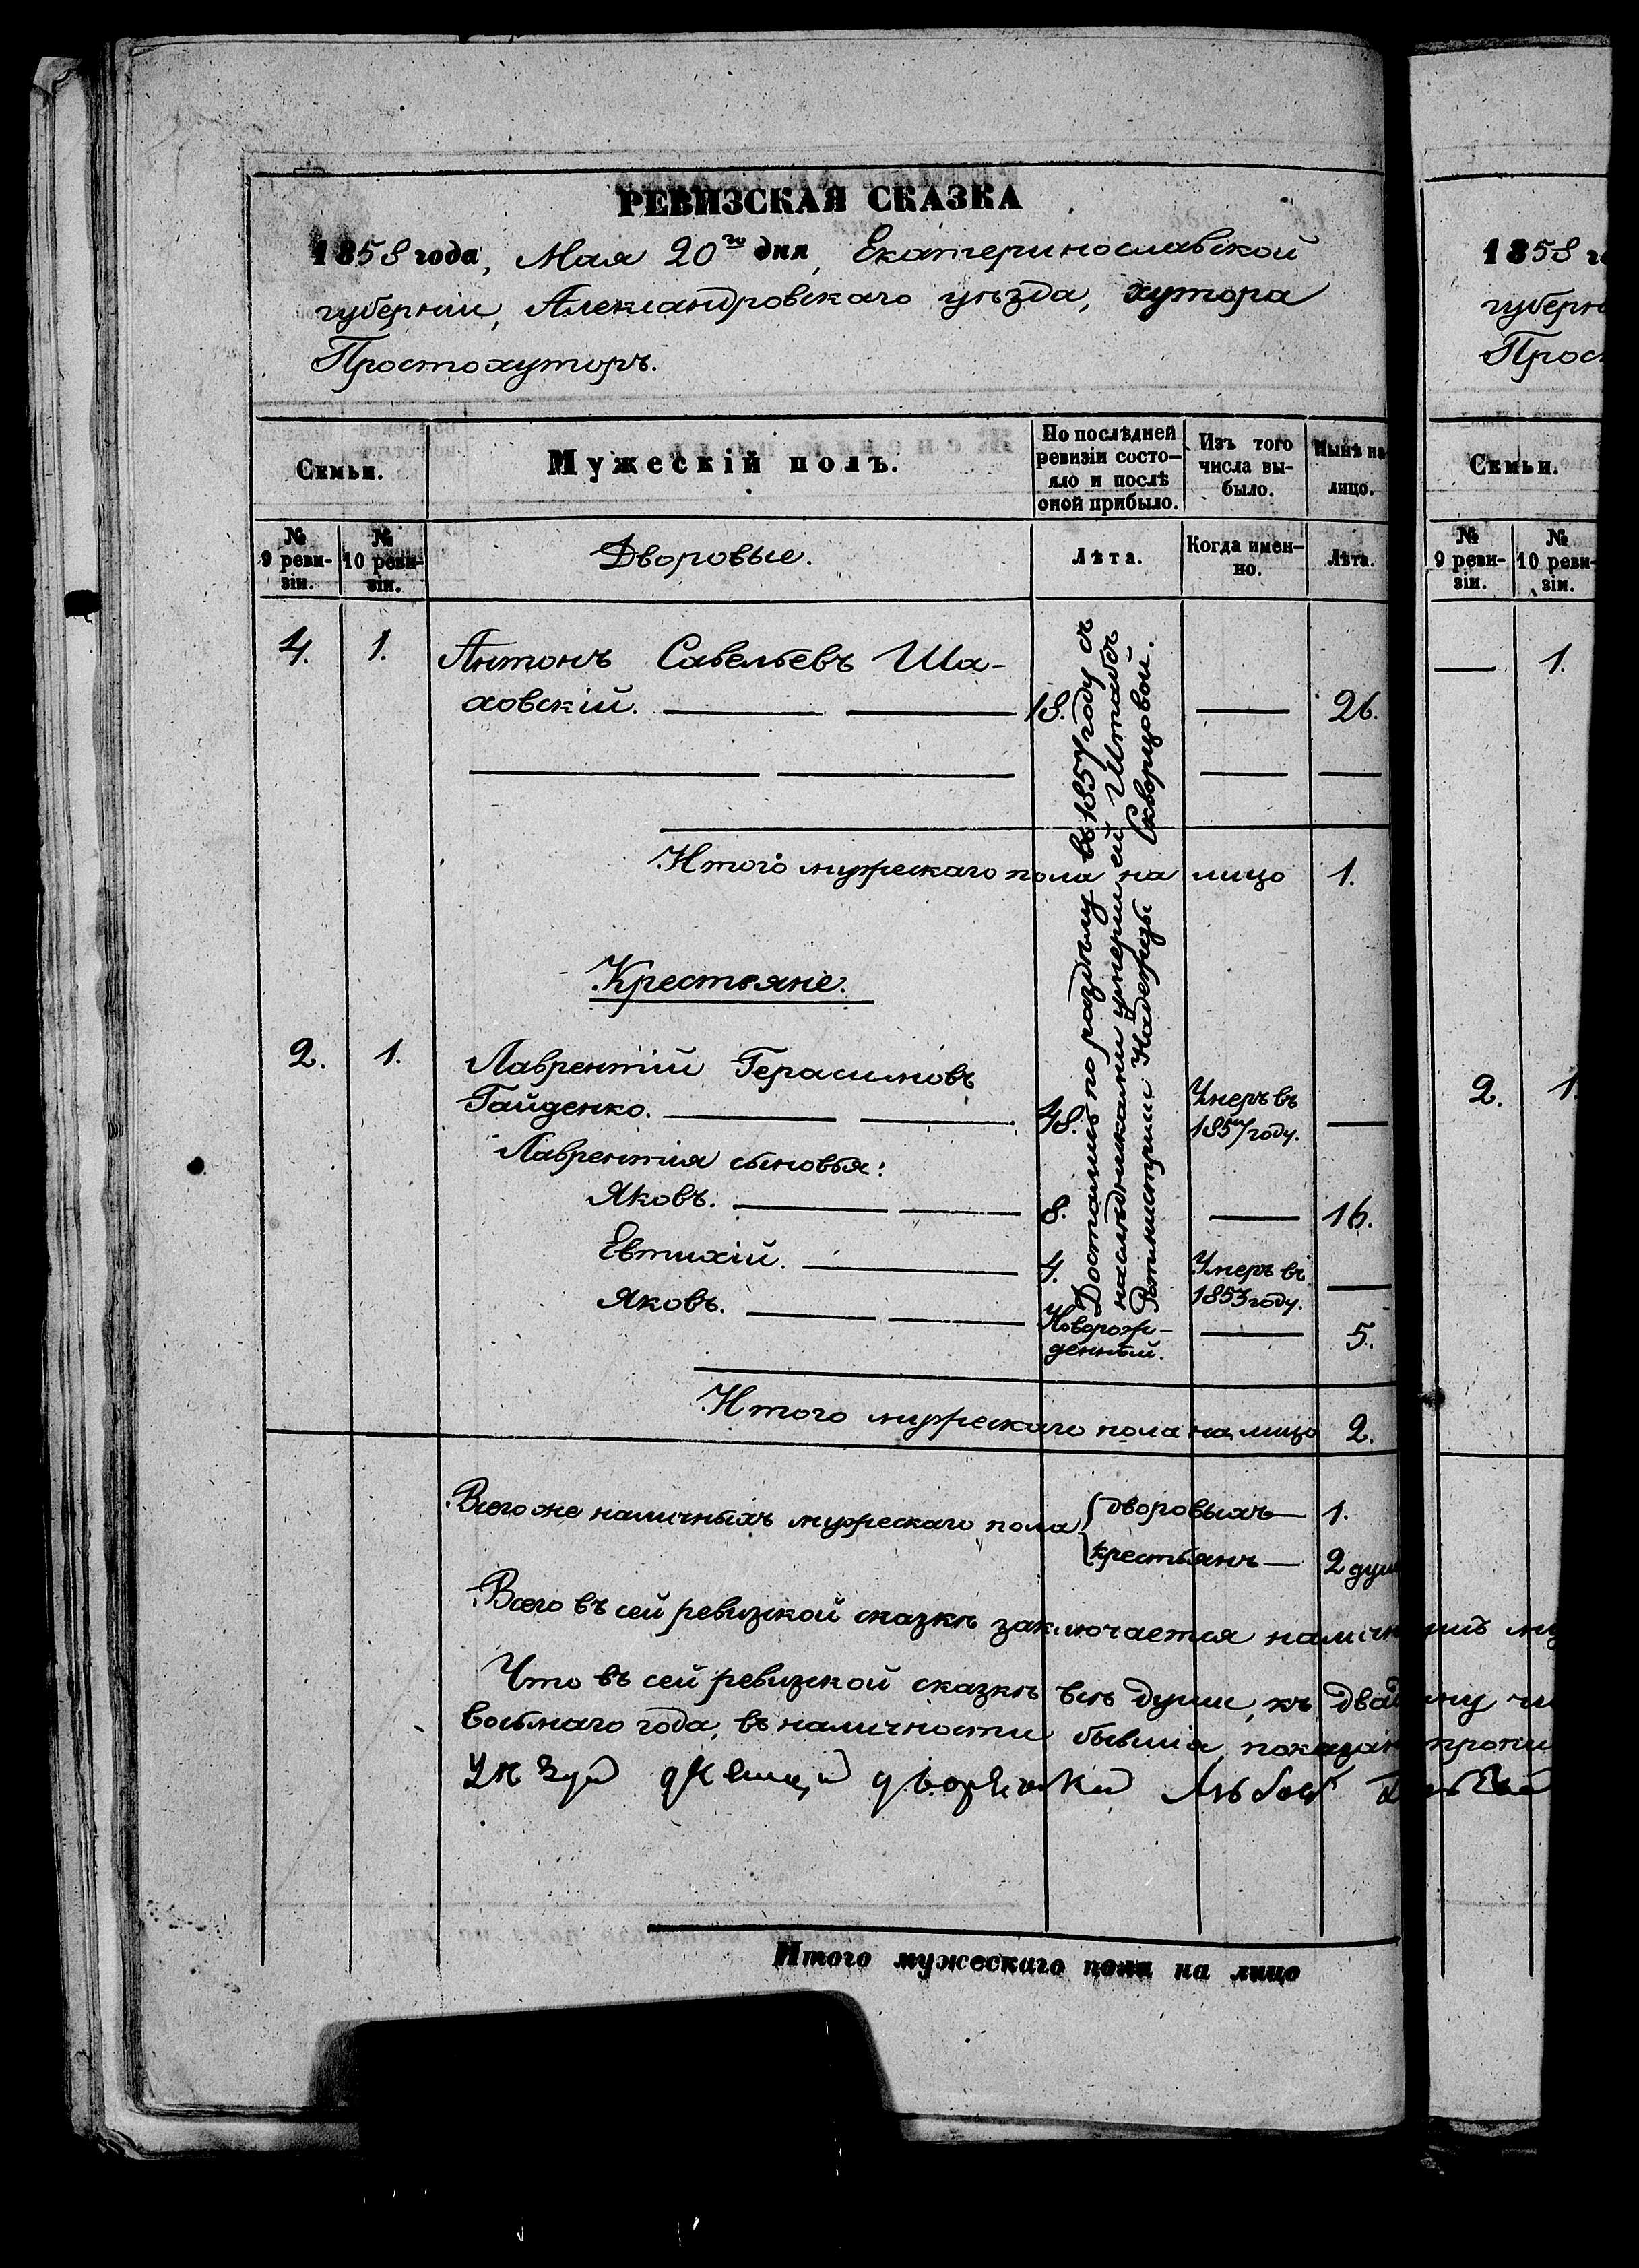 РЕВИЗСКАЯ СКАЗКА
1858 года, Мая 20го дня, Екатеринославской
губерніи, Александровскаго уѣзда, хутора
Простохуторъ.
Семьи.
Мужескій полъ.
По послѣдней ревизіи состо-
яло и послѣ
оной прибыло.
Изъ того
числа вы-
было.
Нынѣ на
лицо.
№
9 реви-
зіи.
№
10 реви-
зіи.
Дворовые.
Лѣта.
Когда имен-
но.
Лѣта.
4. 1. Антонъ Савельевъ Ша-
ховскій. 18. 26.
Достались по раздѣлу въ 1857 году съ
наслѣдниками умершей Штабсъ
Ротмистрши Надежды Скворцовой.
Итого мужескаго пола на лицо 1.
Крестьяне.
2. 1. Лаврентій Герасимовъ
Гайденко. 48. Умеръ въ
1857 году.
Лаврентія сыновья:
Яковъ. 8. 16.
Евтихій. 4. Умеръ въ
1853 году.
Яковъ. Новорож-
денный. 5.
Итого мужескаго пола на лицо 2.
Всего же наличныхъ мужескаго пола дворовыхъ 1.
крестьянъ 2 душ
Всего въ сей ревизской сказкѣ заключается наличн
Что въ сей ревизской сказкѣ всѣ души, къ двад
восьмаго года, въ наличности бывшія, показан
дворянки
Итого мужескаго пола на лицо
1858 го
губерн
Прос
Семьи.
№
9 реви-
зіи.
№
10 реви-
зіи.
1.
2. 1.
му
пропи